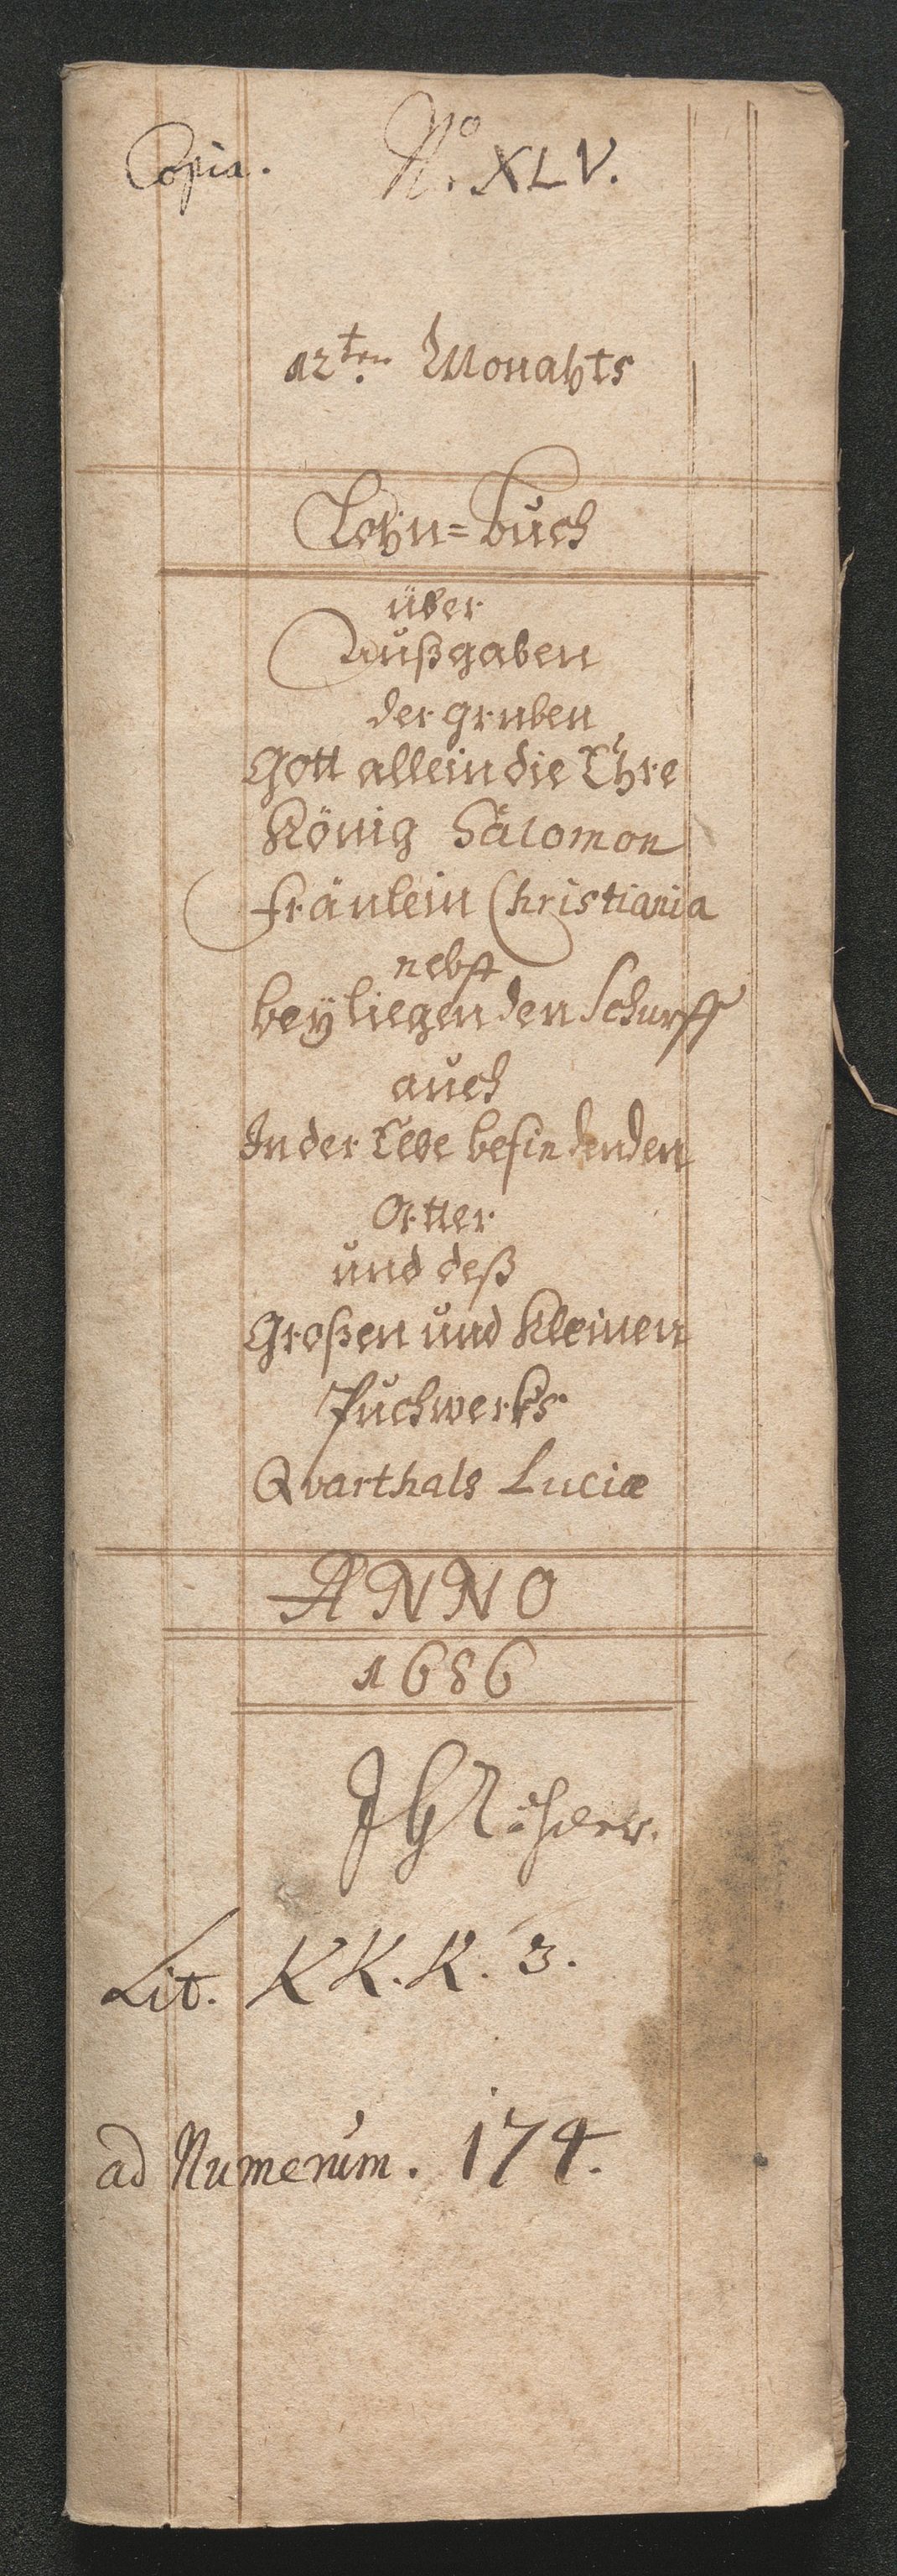 Copia. No. XLV.
12ten. Monahts
Lohn=buch
über
Außgaben
der gruben
Gott allein die Ehre
König Salomon
fräulein Christiania
nebst
beyliegenden Schurff
auch
In der befindenden
Ötter
und deß
Großen und Kleinen
Puchwerks
Qvarthals Luciæ
ANNO
1686
Lit. K K. K. 3.
ad Numerum. 174.